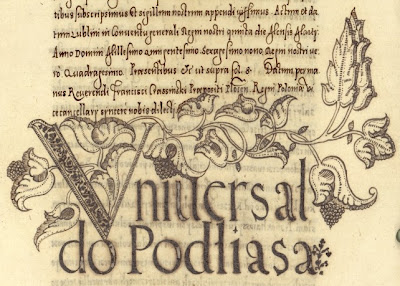 tibus subscripsimus et sigillum nostrum appendi iussimus Actum et da
tum Lublini in Conventu generali Regni nostri quinta die Mensis Martij
Anno Domini Millesimo quingentesimo Sexagesimo nono, Regni nostri ve
ro Quadragesimo Praesentibus ut supra fol. 8. Datum per ma
nus Reverendi Francisci Crasinski Praepositi Plocen. Regni Poloniae vi
cecancellarij syncere nobis dilecti
Vniuersal
do Podliasa